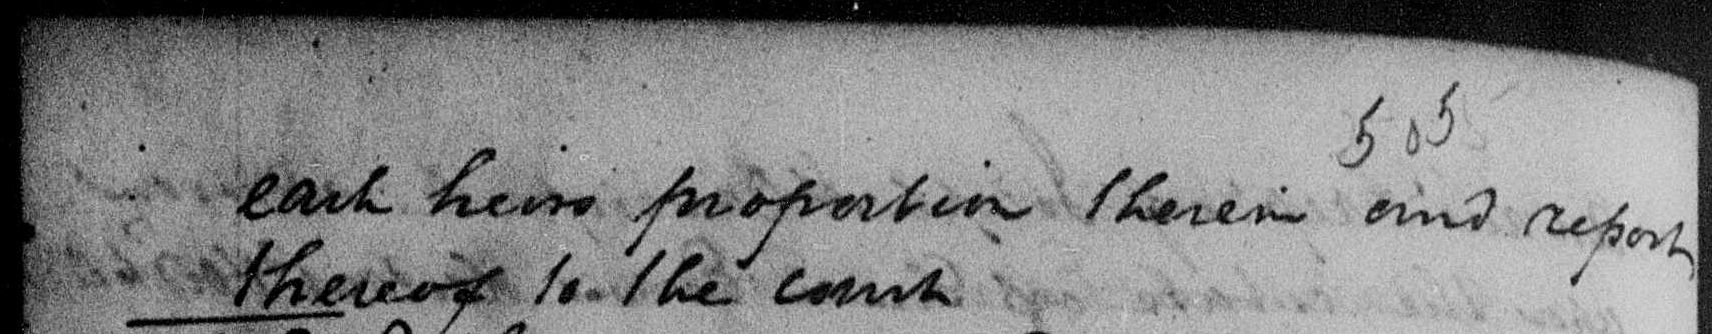 505
each heirs proportion therein and report
thereof to the court